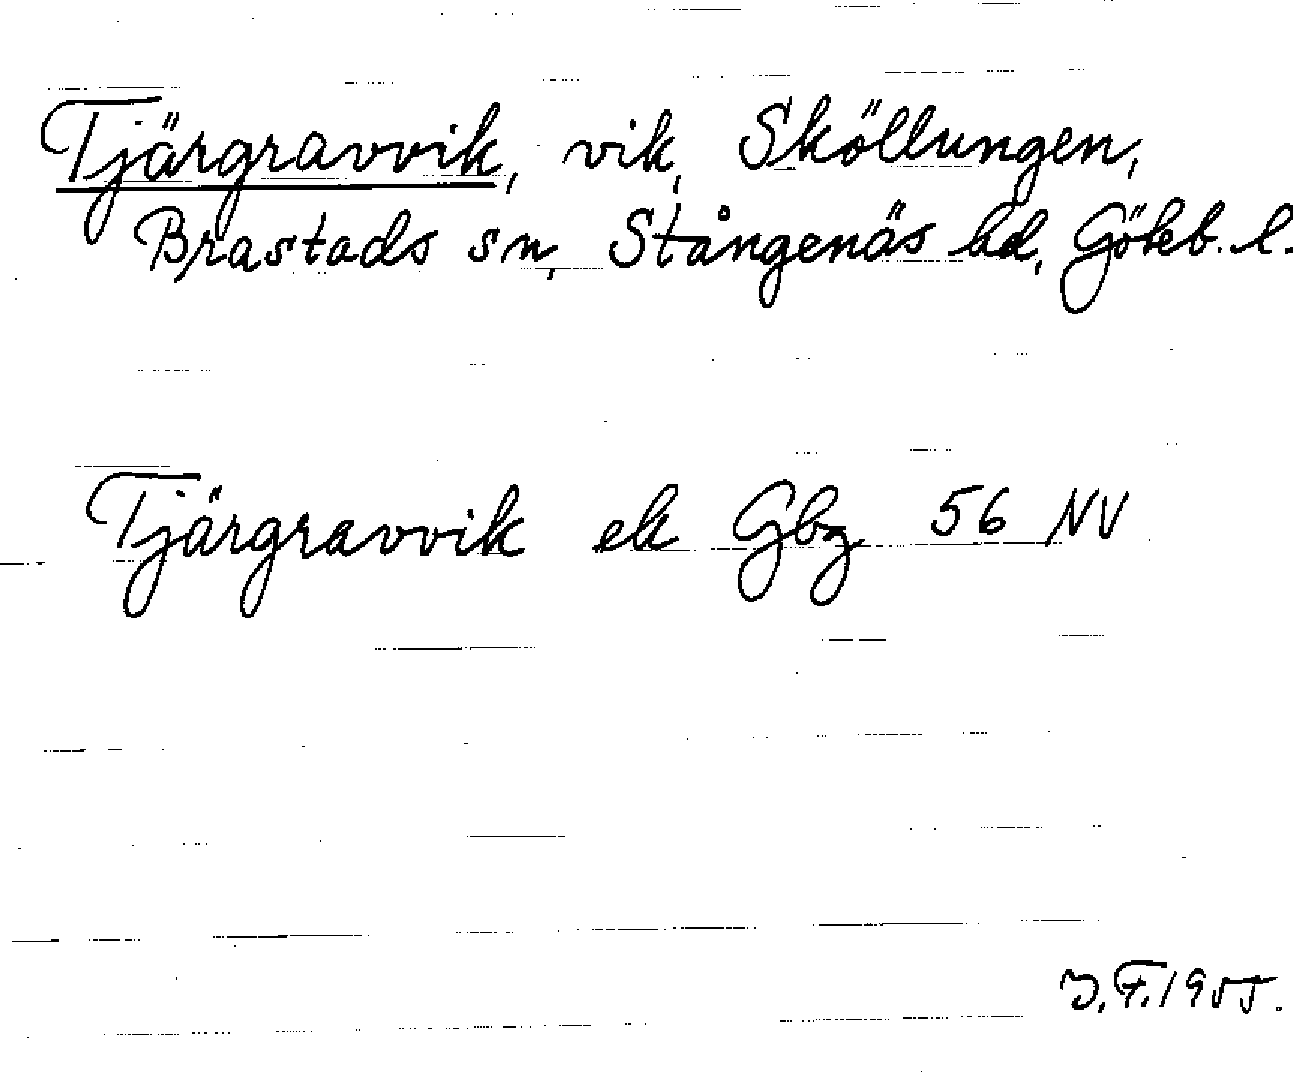 Tjärgravvik, vik, Sköllungen,
Brastads sn, Stångenäs hd, Götkb. l.
Tjärgravvik ek Gbg 56 NV
J.F. 1955.